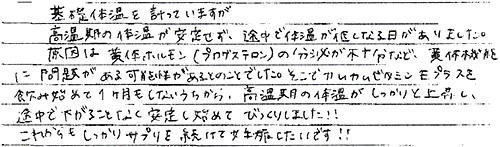 基礎体温を計っていますが
高温期の体温が安定せず、途中で体温が低くなる日がありました。
原因は黄体ホルモン(プロゲステロン)の分泌が不十分など、黄体機能
に問題がある可能性があるとのことでした。そこでカムカムビタミンEプラスを
飲み始めて1ヶ月もしないうちから、高温期の体温がしっかりと上昇し、
途中で下がることなく安定し始めてびっくりしました!!
これからもしっかりサプリを続けて妊娠したいです!!